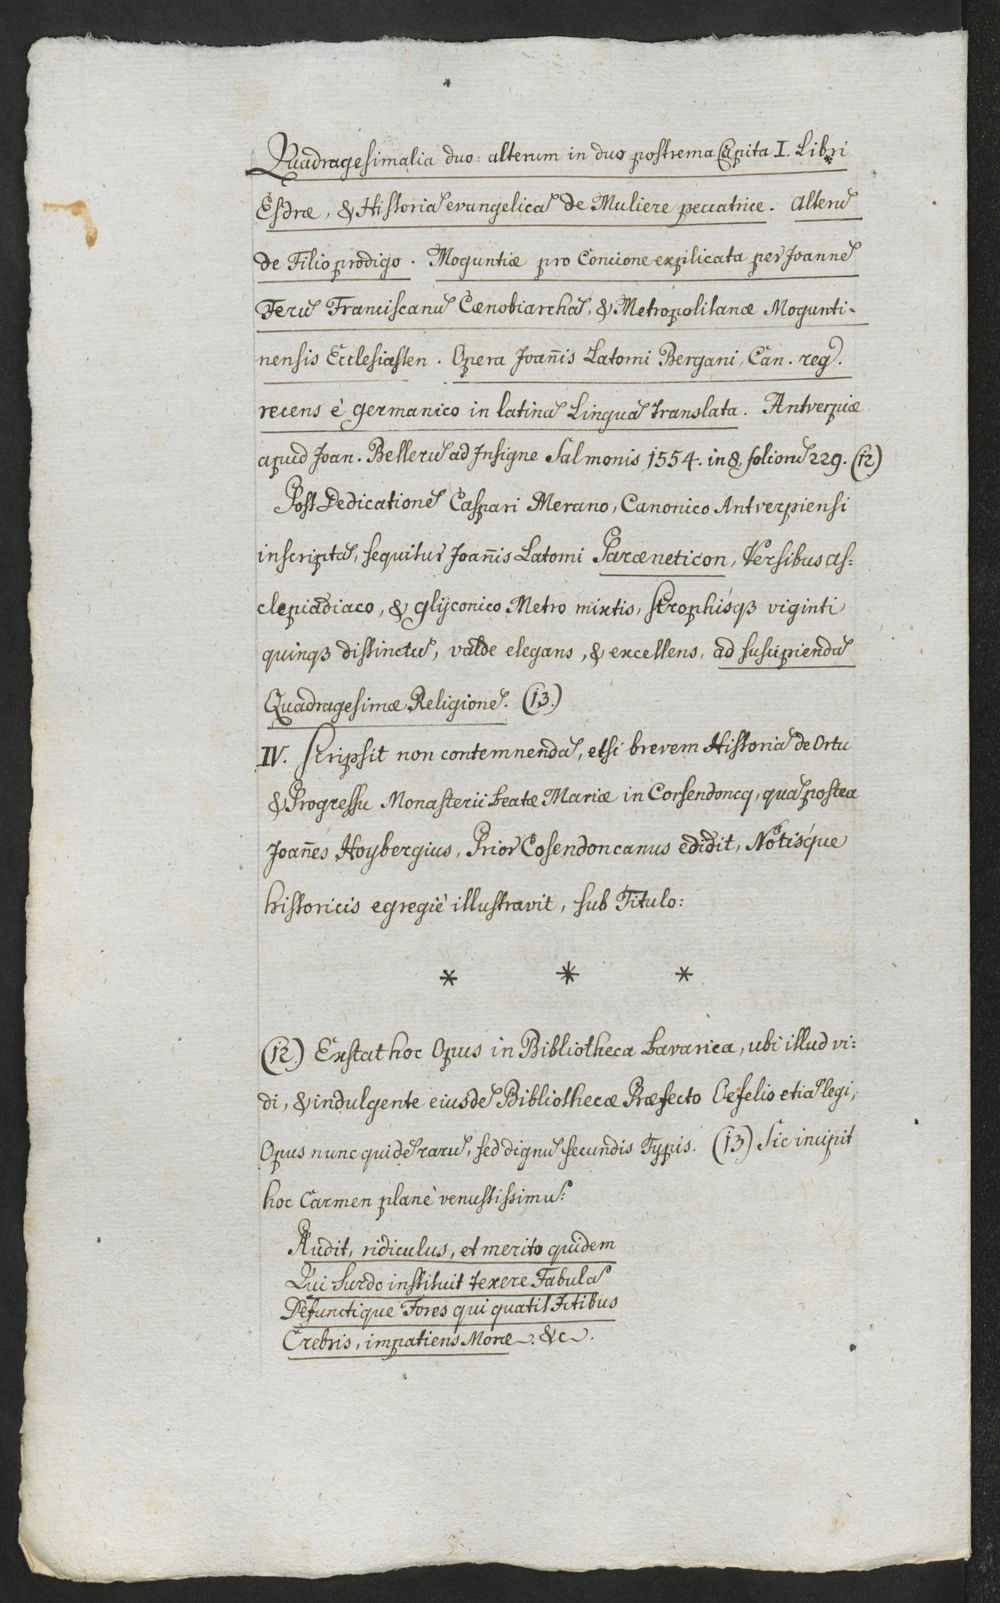 Quadragesimalia duo: alterum in duo postrema Capita I. Libri
Esdræ, & Historiā evangelicā de Muliere peccatrice. Alterū
de Filio prodigo. Moguntiæ pro Concione explicata per Joannē
Ferū Franciscanū Cænobiarchā, & Metropolitanæ Mogunti-
nensis Ecclesiasten. Opera Joan̄is Latomi Bergani, Can. reg.
recens è germanico in latinā Linguā translata. Antverpiæ
apud Joan. Bellerū ad Insigne Salmonis 1554. in 8. foliorū 229. (12)
Post Dedicationē Caspari Merano, Canonico Antverpiensi
inscriptā, sequitur Joan̄is Latomi Paræneticon, Versibus as:
clepiadiaco, & glyconico Metro mixtis, strophisqȝ viginti
quinqȝ distinctū, valde elegans, & excellens, ad suscipiendā
Quadragesimæ Religionē. (13.)
IV. Scripsit non contemnendā, etsi brevem Historiā de Ortu
& Progressu Monasterii beatæ Mariæ in Corsendoncq, quā postea
Joan̄es Hoybergius, Prior Cosendoncanus edidit, Notisque
historicis egregiè illustravit, sub Titulo:
* * *
(12.) Exstat hoc Opus in Bibliotheca bavarica, ubi illud vi:
di, & indulgente eiusdē Bibliothecæ Præfecto Oefelio etiā legi,
Opus nunc quidē rarū, sed dignū secundis Typis. (13) Sic incipit
hoc Carmen planè venustissimū:
Audit, ridiculus, et merito quidem
Qui surdo instituit texere Fabulā
Defunctique Fores qui quatit Ictibus
Crebris, impatiens Moræ. &c.